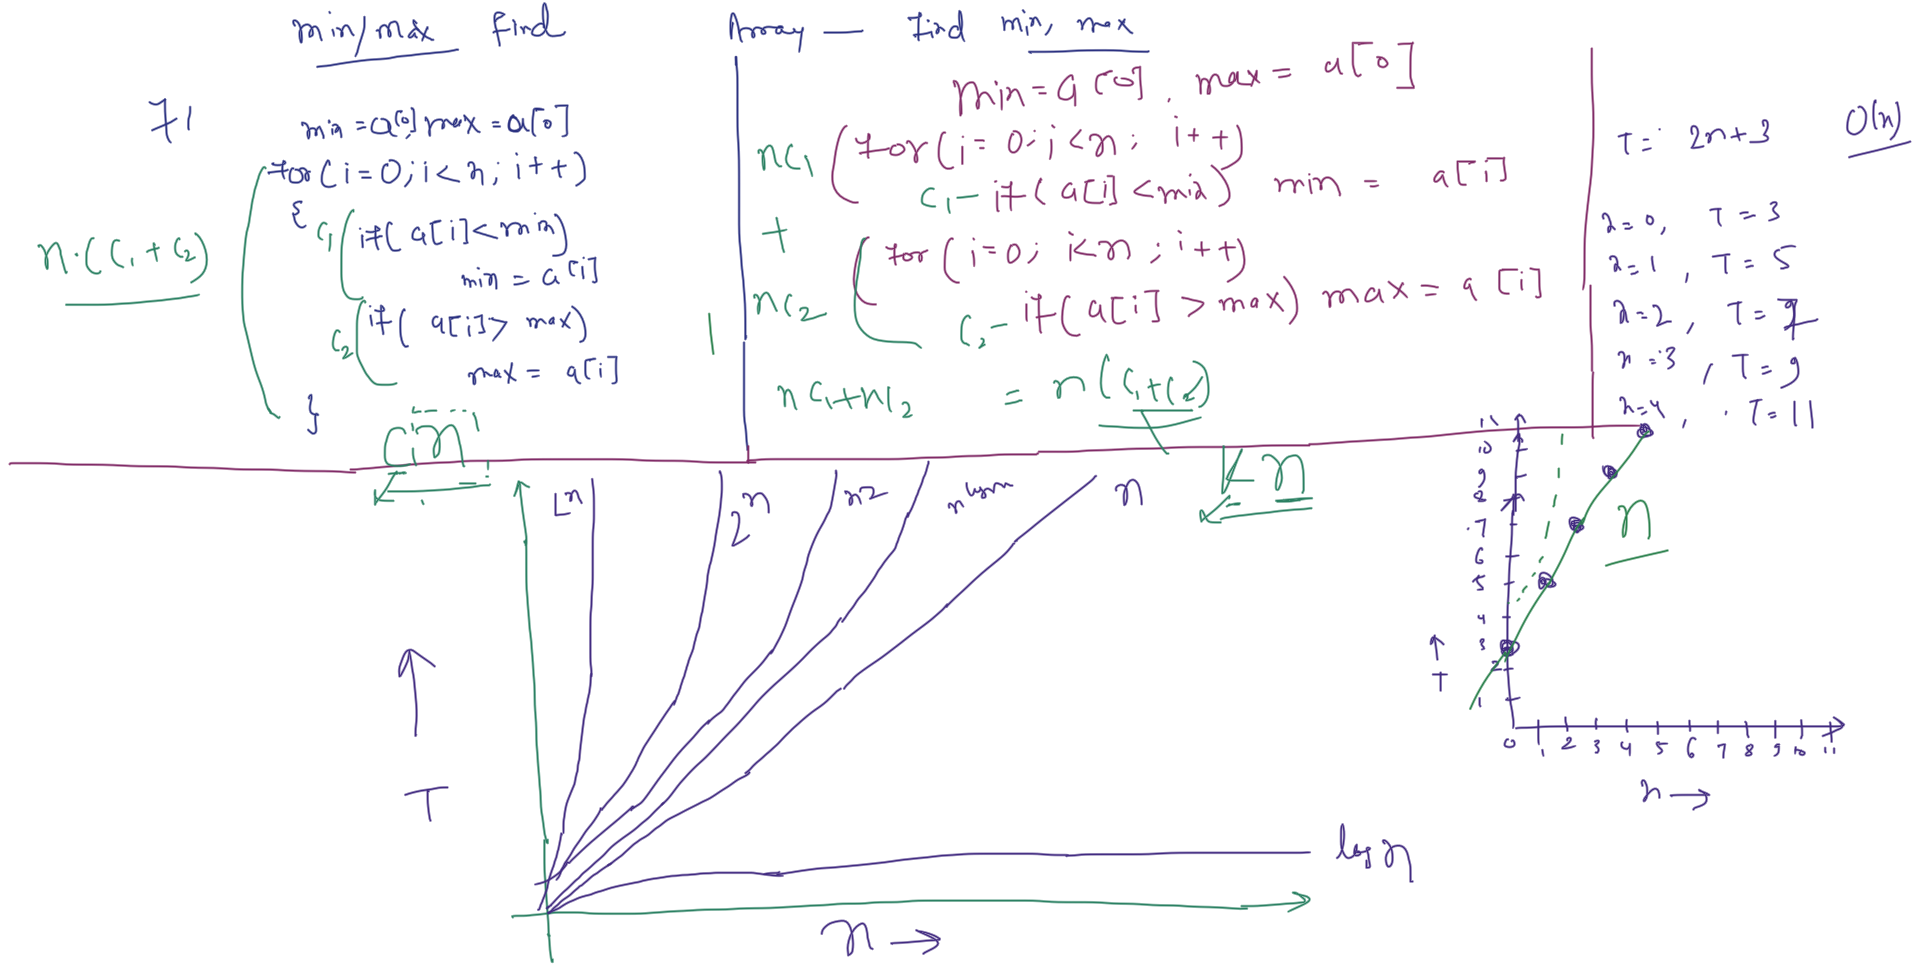 min/max find
71
min = a[0] max = a[0]
for (i = 0; i < n; i++)
{
c1 if( a[i] < min)
min = a[i]
n.(c1 + c2)
c2 if( a[i] > max)
max = a[i]
}
c1n
Array — Find min, max
min = a[0], max = a[0]
nc1 for (i = 0; i < n; i++)
c1 – if( a[i] < min) min = a[i]
+
for (i = 0; i < n; i++)
nc2
c2 – if( a[i] > max) max = a[i]
nc1 + nc2 = n(c1 + c2)
k n
T = 2n+3 O(n)
n = 0, T = 3
n = 1, T = 5
n = 2, T = 7
n = 3, T = 9
n = 4, T = 11
Ln 2^n n2 n logn n
T
log n
n →
11
10
9
8
7
6
5
4
3
2
1
n
T
0 1 2 3 4 5 6 7 8 9 10 11
n →